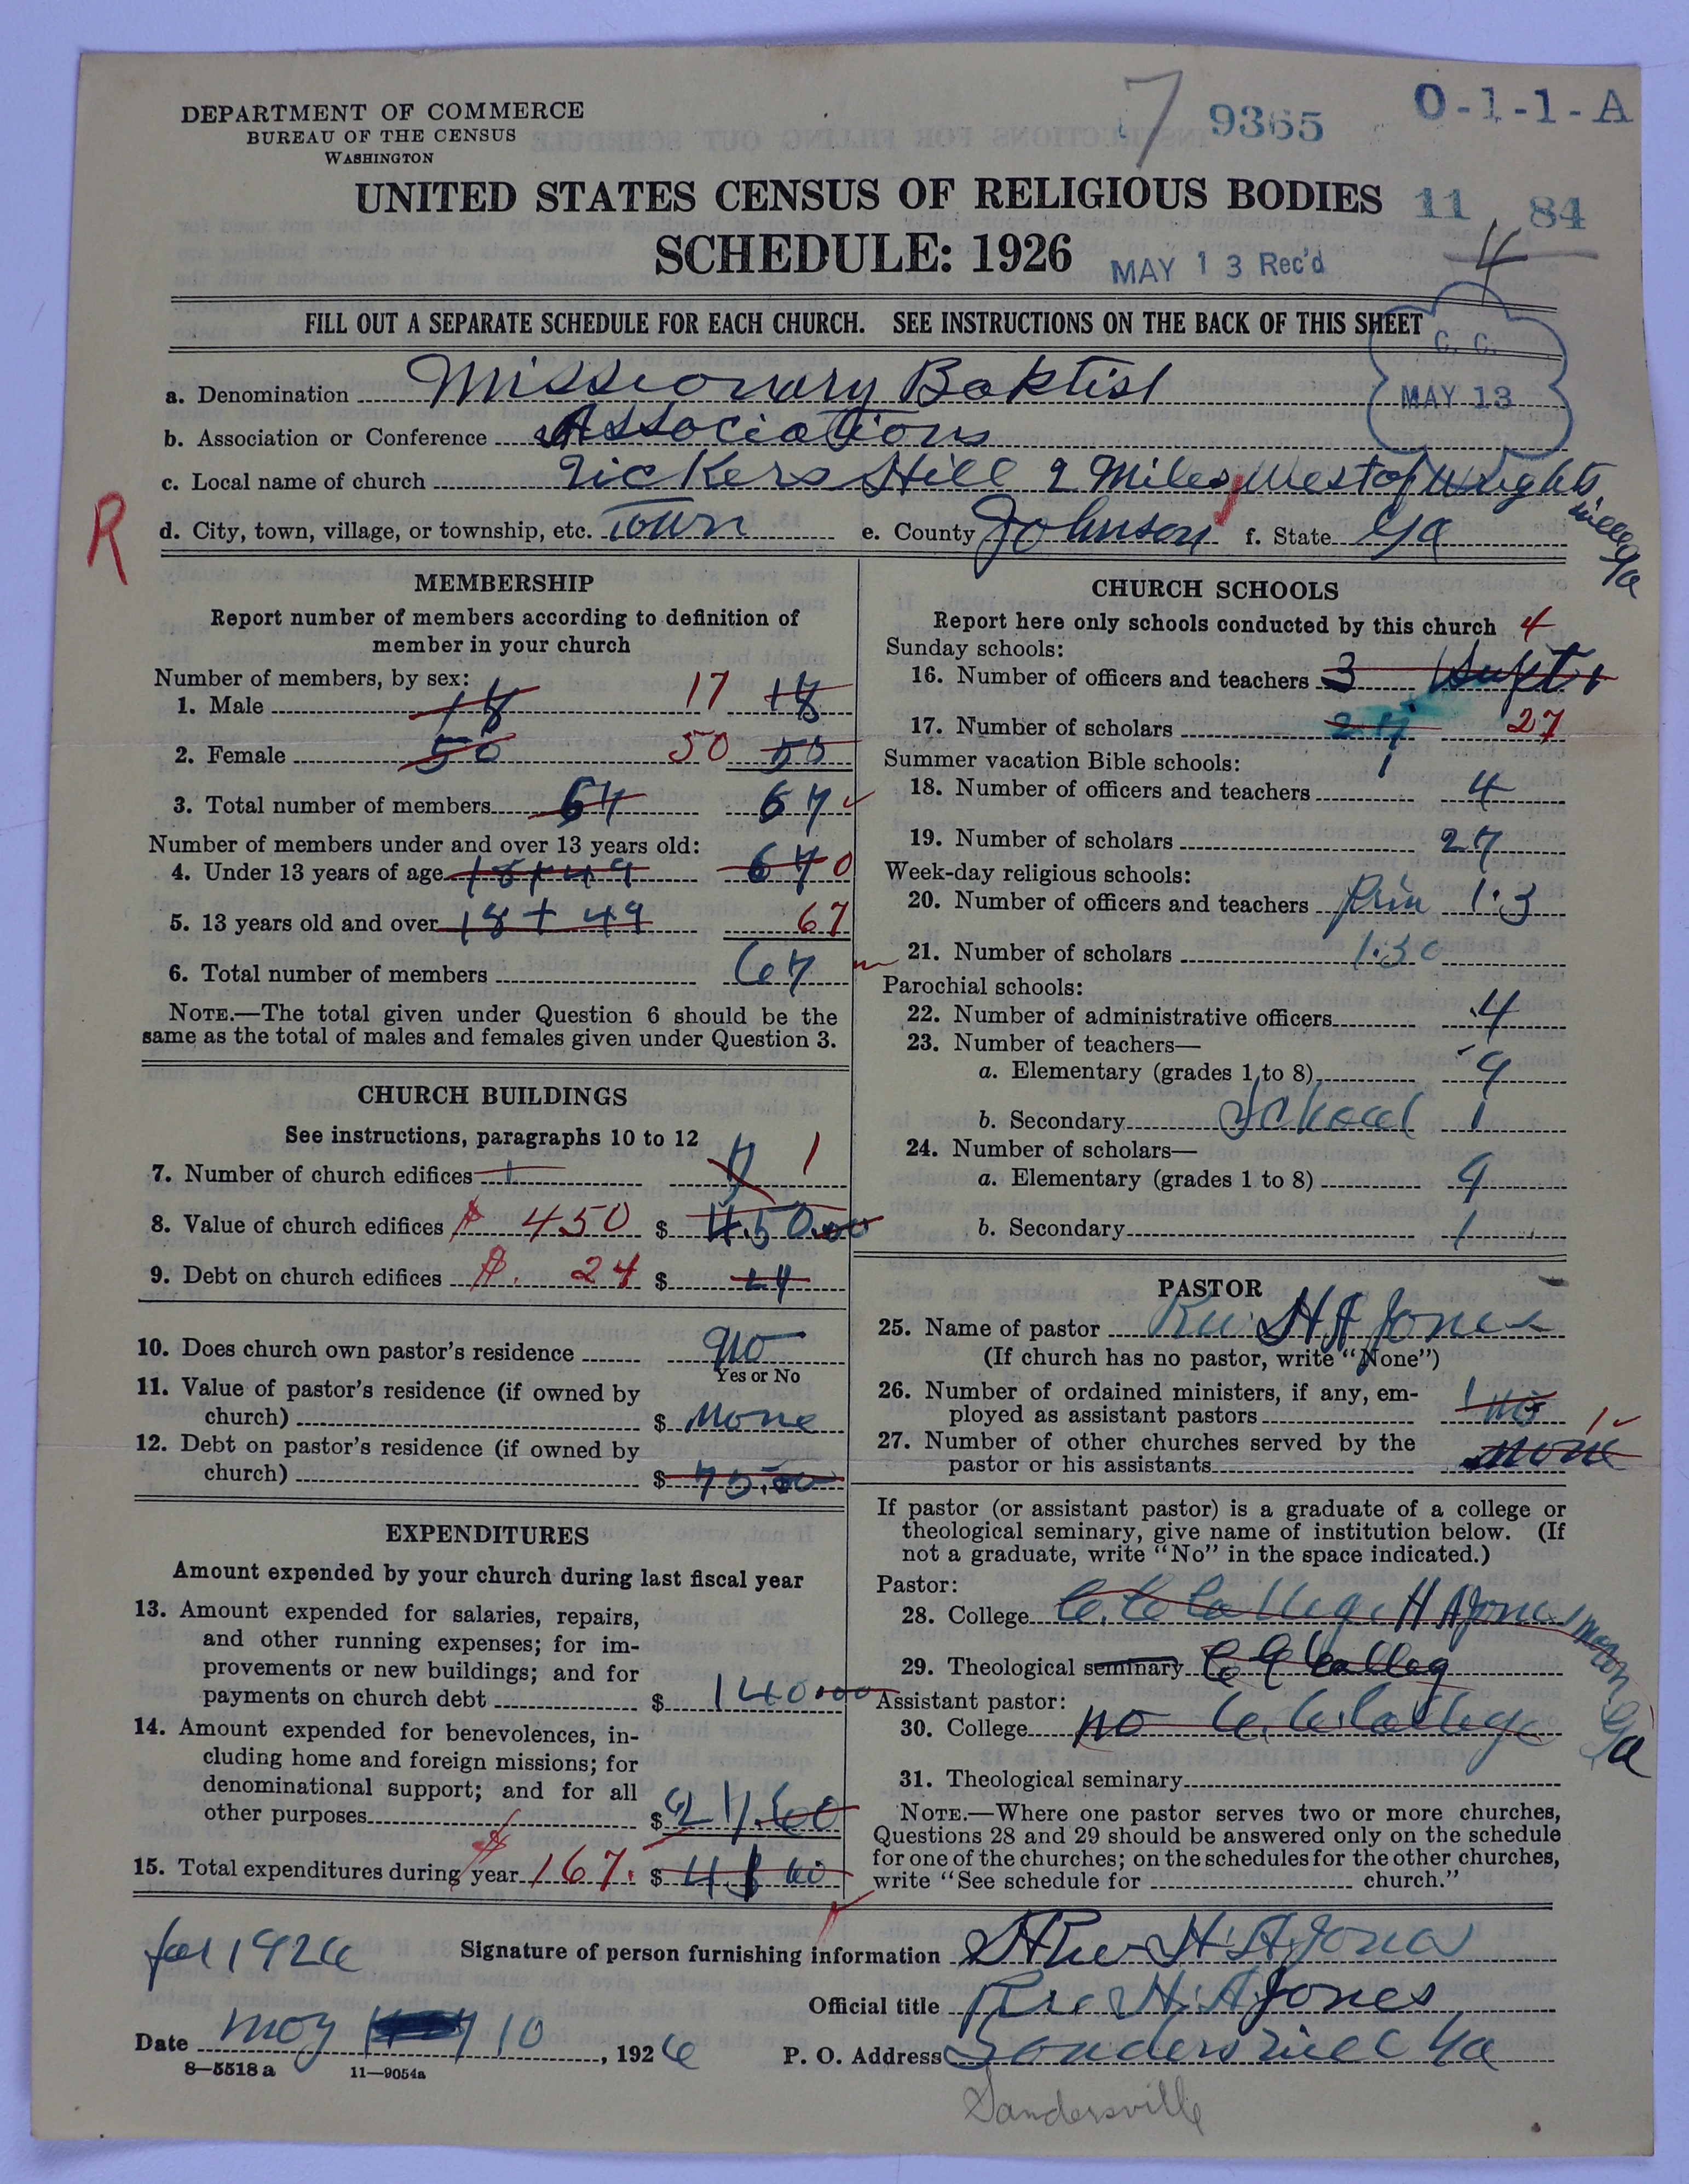 DEPARTMENT OF COMMERCE
BUREAU OF THE CENSUS
WASHINGTON
7 9365 O-1-1-A
UNITED STATES CENSUS OF RELIGIOUS BODIES 11 84
SCHEDULE: 1926 MAY 13 Rec'd 4
FILL OUT A SEPARATE SCHEDULE FOR EACH CHURCH. SEE INSTRUCTIONS ON THE BACK OF THIS SHEET
C. C.
MAY 13
a. Denomination Missionary Baptist
b. Association or Conference Associations
c. Local name of church Hill 2 Miles West of Wrights
ville Ga
R
d. City, town, village, or township, etc. Town e. County Johnson f. State Ga
MEMBERSHIP
Report number of members according to definition of
member in your church
Number of members, by sex:
1. Male 18 17 18
2. Female 50 50 50
3. Total number of members 67 67
Number of members under and over 13 years old:
4. Under 13 years of age 18+49 67 0
5. 13 years old and over 18+49 67
6. Total number of members 67
NOTE.—The total given under Question 6 should be the
same as the total of males and females given under Question 3.
CHURCH BUILDINGS
See instructions, paragraphs 10 to 12
7. Number of church edifices 1 1
8. Value of church edifices $ 450 $ 450.00
9. Debt on church edifices $. 24 $ 24
10. Does church own pastor's residence no
Yes or No
11. Value of pastor's residence (if owned by
church) $ None
12. Debt on pastor's residence (if owned by
church) $ 75.00
EXPENDITURES
Amount expended by your church during last fiscal year
13. Amount expended for salaries, repairs,
and other running expenses; for im-
provements or new buildings; and for
payments on church debt $ 140.00
14. Amount expended for benevolences, in-
cluding home and foreign missions; for
denominational support; and for all
other purposes $ 27.60
15. Total expenditures during year $ 167. $ 60
CHURCH SCHOOLS
Report here only schools conducted by this church 4
Sunday schools:
16. Number of officers and teachers 3 1 Supt 1
17. Number of scholars 27 27
Summer vacation Bible schools:
18. Number of officers and teachers 4
19. Number of scholars 27
Week-day religious schools:
20. Number of officers and teachers Prin 1.3
21. Number of scholars 1.30
Parochial schools:
22. Number of administrative officers 4
23. Number of teachers—
a. Elementary (grades 1 to 8) 9
b. Secondary School 1
24. Number of scholars—
a. Elementary (grades 1 to 8) 9
b. Secondary 1
PASTOR
25. Name of pastor Rev. H A Jones
(If church has no pastor, write "None")
26. Number of ordained ministers, if any, em-
ployed as assistant pastors 1 no
27. Number of other churches served by the 1
pastor or his assistants none
If pastor (or assistant pastor) is a graduate of a college or
theological seminary, give name of institution below. (If
not a graduate, write "No" in the space indicated.)
Pastor:
28. College C. C College H A Jones Macon Ga
29. Theological seminary C C Colleg
Assistant pastor:
30. College no C. C. College
31. Theological seminary
NOTE.—Where one pastor serves two or more churches,
Questions 28 and 29 should be answered only on the schedule
for one of the churches; on the schedules for the other churches,
write "See schedule for church."
for 1926 Signature of person furnishing information Rev H. A. Jones
Official title Rev H. A Jones
Date May 10, 1926 P. O. Address Sandersville Ga
8—5518 a 11—9054a
Sandersville